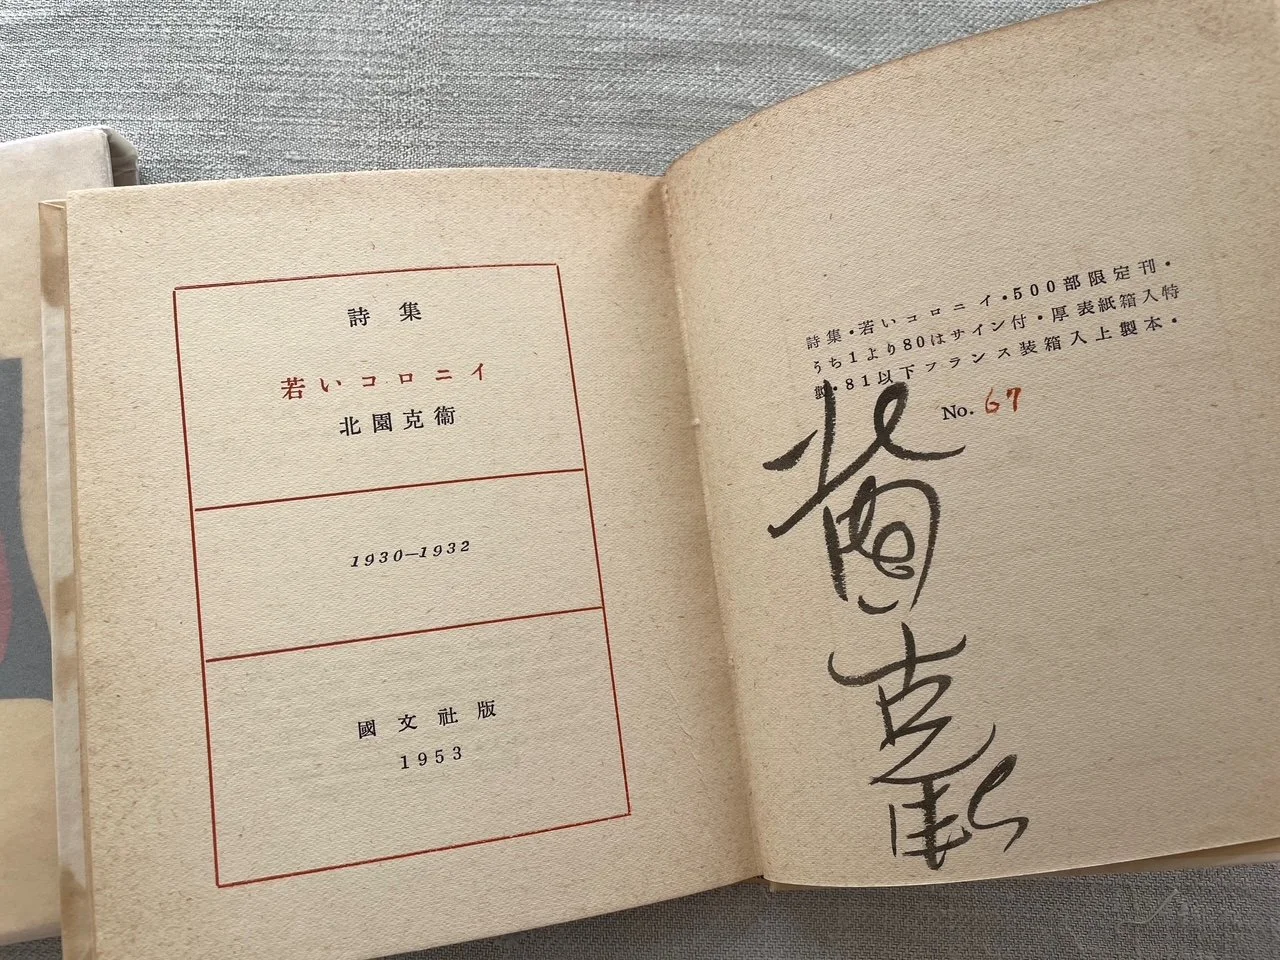 詩集
若いコロニイ
北園克衞
1930—1932
國文社版
1953
詩集・若いコロニイ・500部限定刊・
うち1より80はサイン付・厚表紙箱入特
製・81以下フランス装箱入上製本・
No. 67
北園克衛